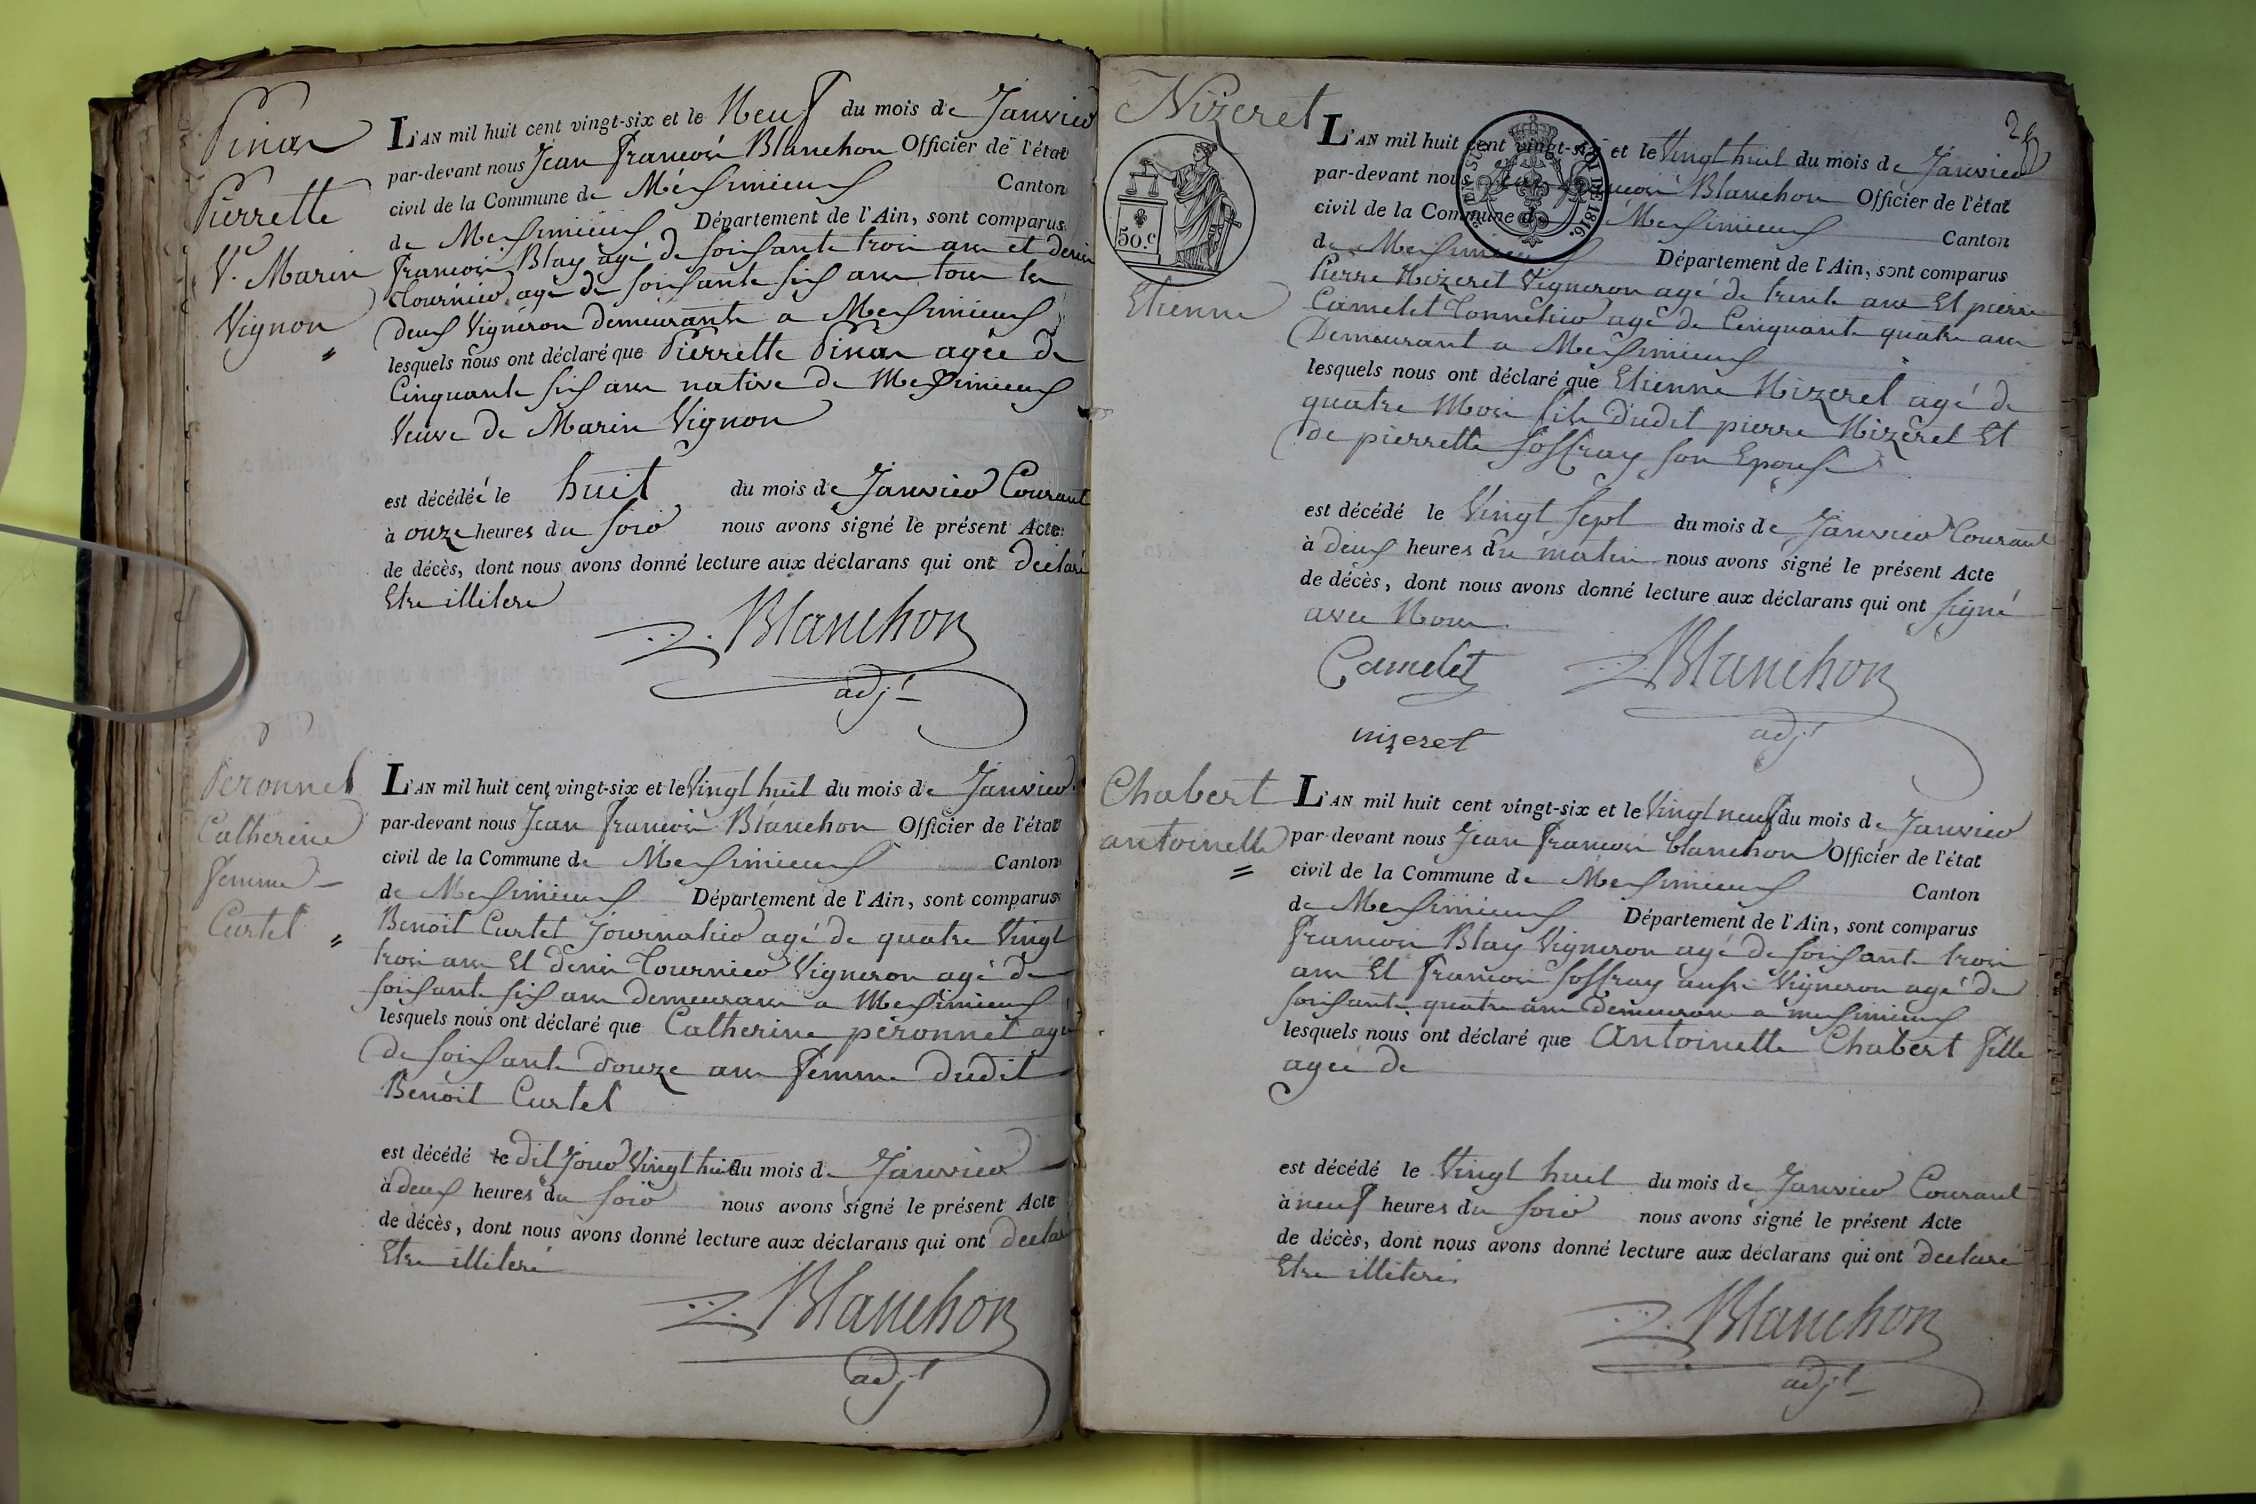 Pinas
Pierrette
V.e Marin
Vignon
L'AN mil huit cent vingt-six et le Neuf du mois de Janvier
par-devant nous Jean François Blanchon Officier de l'état
civil de la Commune de Messimieux Canton
de Messimieux Département de l'Ain, sont comparus
François Blay agé de soissante trois ans et denis
Tournier agé de soissante six ans tous les
deux Vigneron demeurants a Messimieux
lesquels nous ont déclaré que Pierrette Pinas agée de
Cinquante six ans native de Messimieux
Veuve de Marin Vignon
est décédée le huit du mois de Janvier Courant
à onze heures du soir nous avons signé le présent Acte
de décès, dont nous avons donné lecture aux déclarans qui ont declaré
Etre illitere
Blanchon
adj.t
Peronnet
Catherine
femme
Curtet
L'AN mil huit cent vingt-six et le Vingt huit du mois de Janvier
par-devant nous Jean François Blanchon Officier de l'état
civil de la Commune de Messimieux Canton
de Messimieux Département de l'Ain, sont comparus
Benoit Curtet Journalier agé de quatre Vingt
trois ans Et denis Tournier Vigneron agé de
soissante six ans demeurans a Messimieux
lesquels nous ont déclaré que Catherine péronnet agé
de soissante douze ans femme dudit
Benoit Curtet
est décédé le dit Jour Vingt huit du mois de Janvier
à deux heures du soir nous avons signé le présent Acte
de décès, dont nous avons donné lecture aux déclarans qui ont declaré
Etre illiteré
Blanchon
adj.t
Nizeret
50.c
Etienne
L'AN mil huit cent vingt-six et le Vingt huit du mois de Janvier
par-devant nous Jean François Blanchon Officier de l'état
civil de la Commune de Messimieux Canton
de Messimieux Département de l'Ain, sont comparus
Pierre Nizeret Vigneron agé de trente ans Et pierre
Camelet Tonnelier agé de Cinquante quatre ans
Demeurant a Messimieux
lesquels nous ont déclaré que Etienne Nizeret agé de
quatre Mois fils dudit pierre Nizeret Et
de pierrette Soffray son Epouse
est décédé le Vingt Sept du mois de Janvier Courant
à deux heures du matin nous avons signé le présent Acte
de décès, dont nous avons donné lecture aux déclarans qui ont signé
avec Nous
Camelet Blanchon
nizeret adj.t
Chabert
antoinette
L'AN mil huit cent vingt-six et le Vingt neuf du mois de Janvier
par-devant nous Jean François blanchon Officier de l'état
civil de la Commune de Messimieux Canton
de Messimieux Département de l'Ain, sont comparus
François Blay Vigneron agé de soissante trois
ans Et François Soffray aussi Vigneron agé de
soissante quatre ans Demeurans a messimieux
lesquels nous ont déclaré que Antoinette Chabert fille
agée de
est décédé le Vingt huit du mois de Janvier Courant
à neuf heures du soir nous avons signé le présent Acte
de décès, dont nous avons donné lecture aux déclarans qui ont declaré
Etre illiterés
Blanchon
adj.t